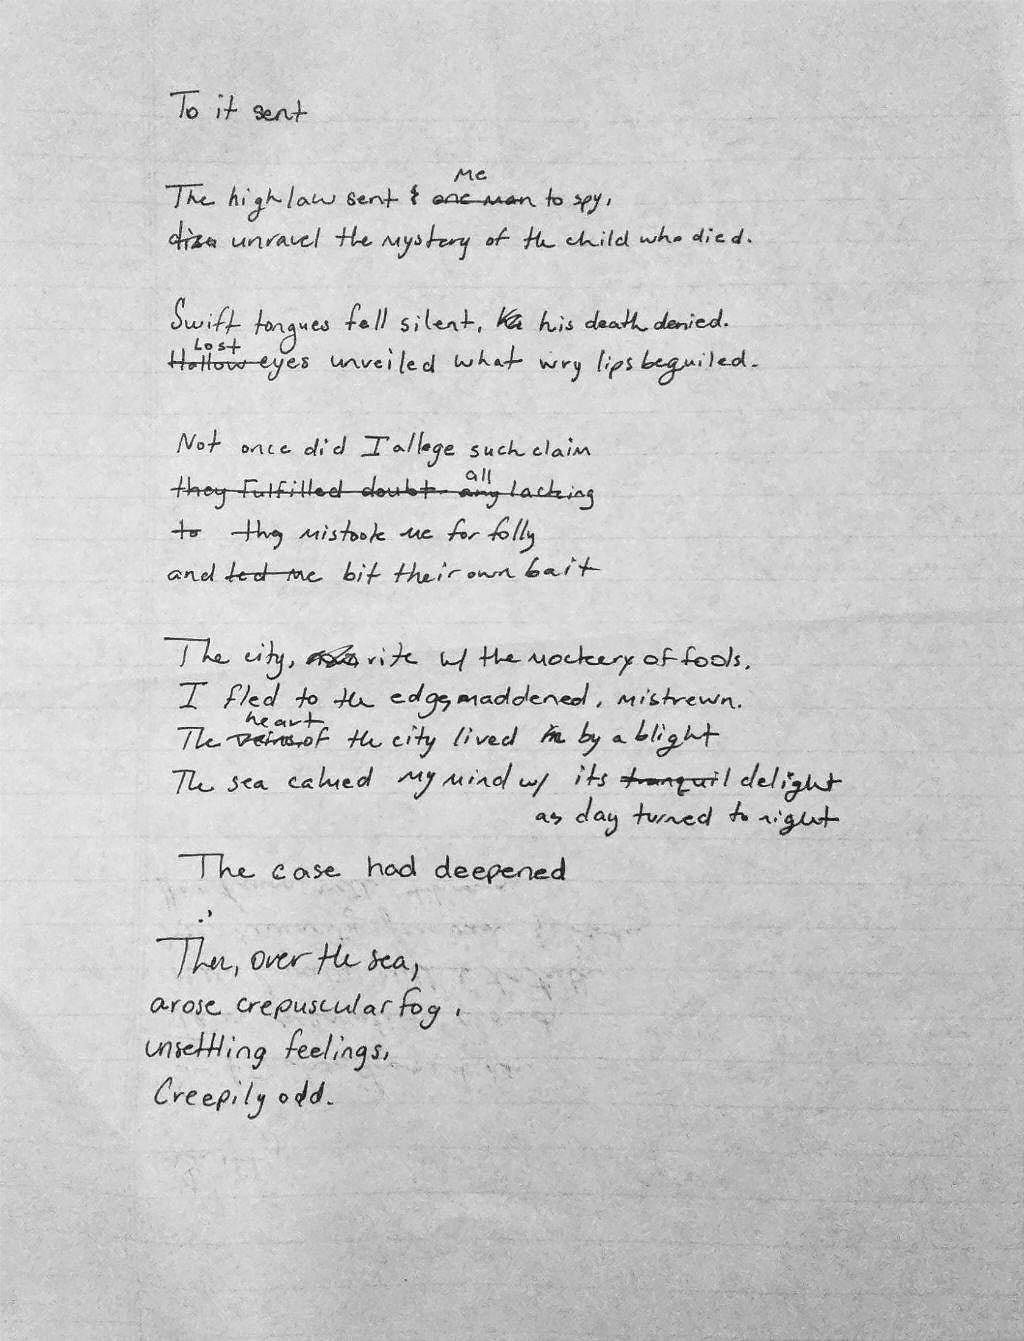 To it sent
The high law sent me to spy,
unravel the mystery of the child who died.
Swift tongues fell silent, his death denied.
Lost eyes unveiled what wry lips beguiled.
Not once did I allege such claim
they fulfilled doubt all any lacking
to they mistook me for folly
and led me bit their own bait
The city, rite w/ the mockery of fools.
I fled to the edge, maddened, mistrewn.
The heart of the city lived by a blight
The sea calmed my mind w/ its tranquil delight
as day turned to night
The case had deepened
Then, over the sea,
arose crepuscular fog,
unsettling feelings,
Creepily odd.